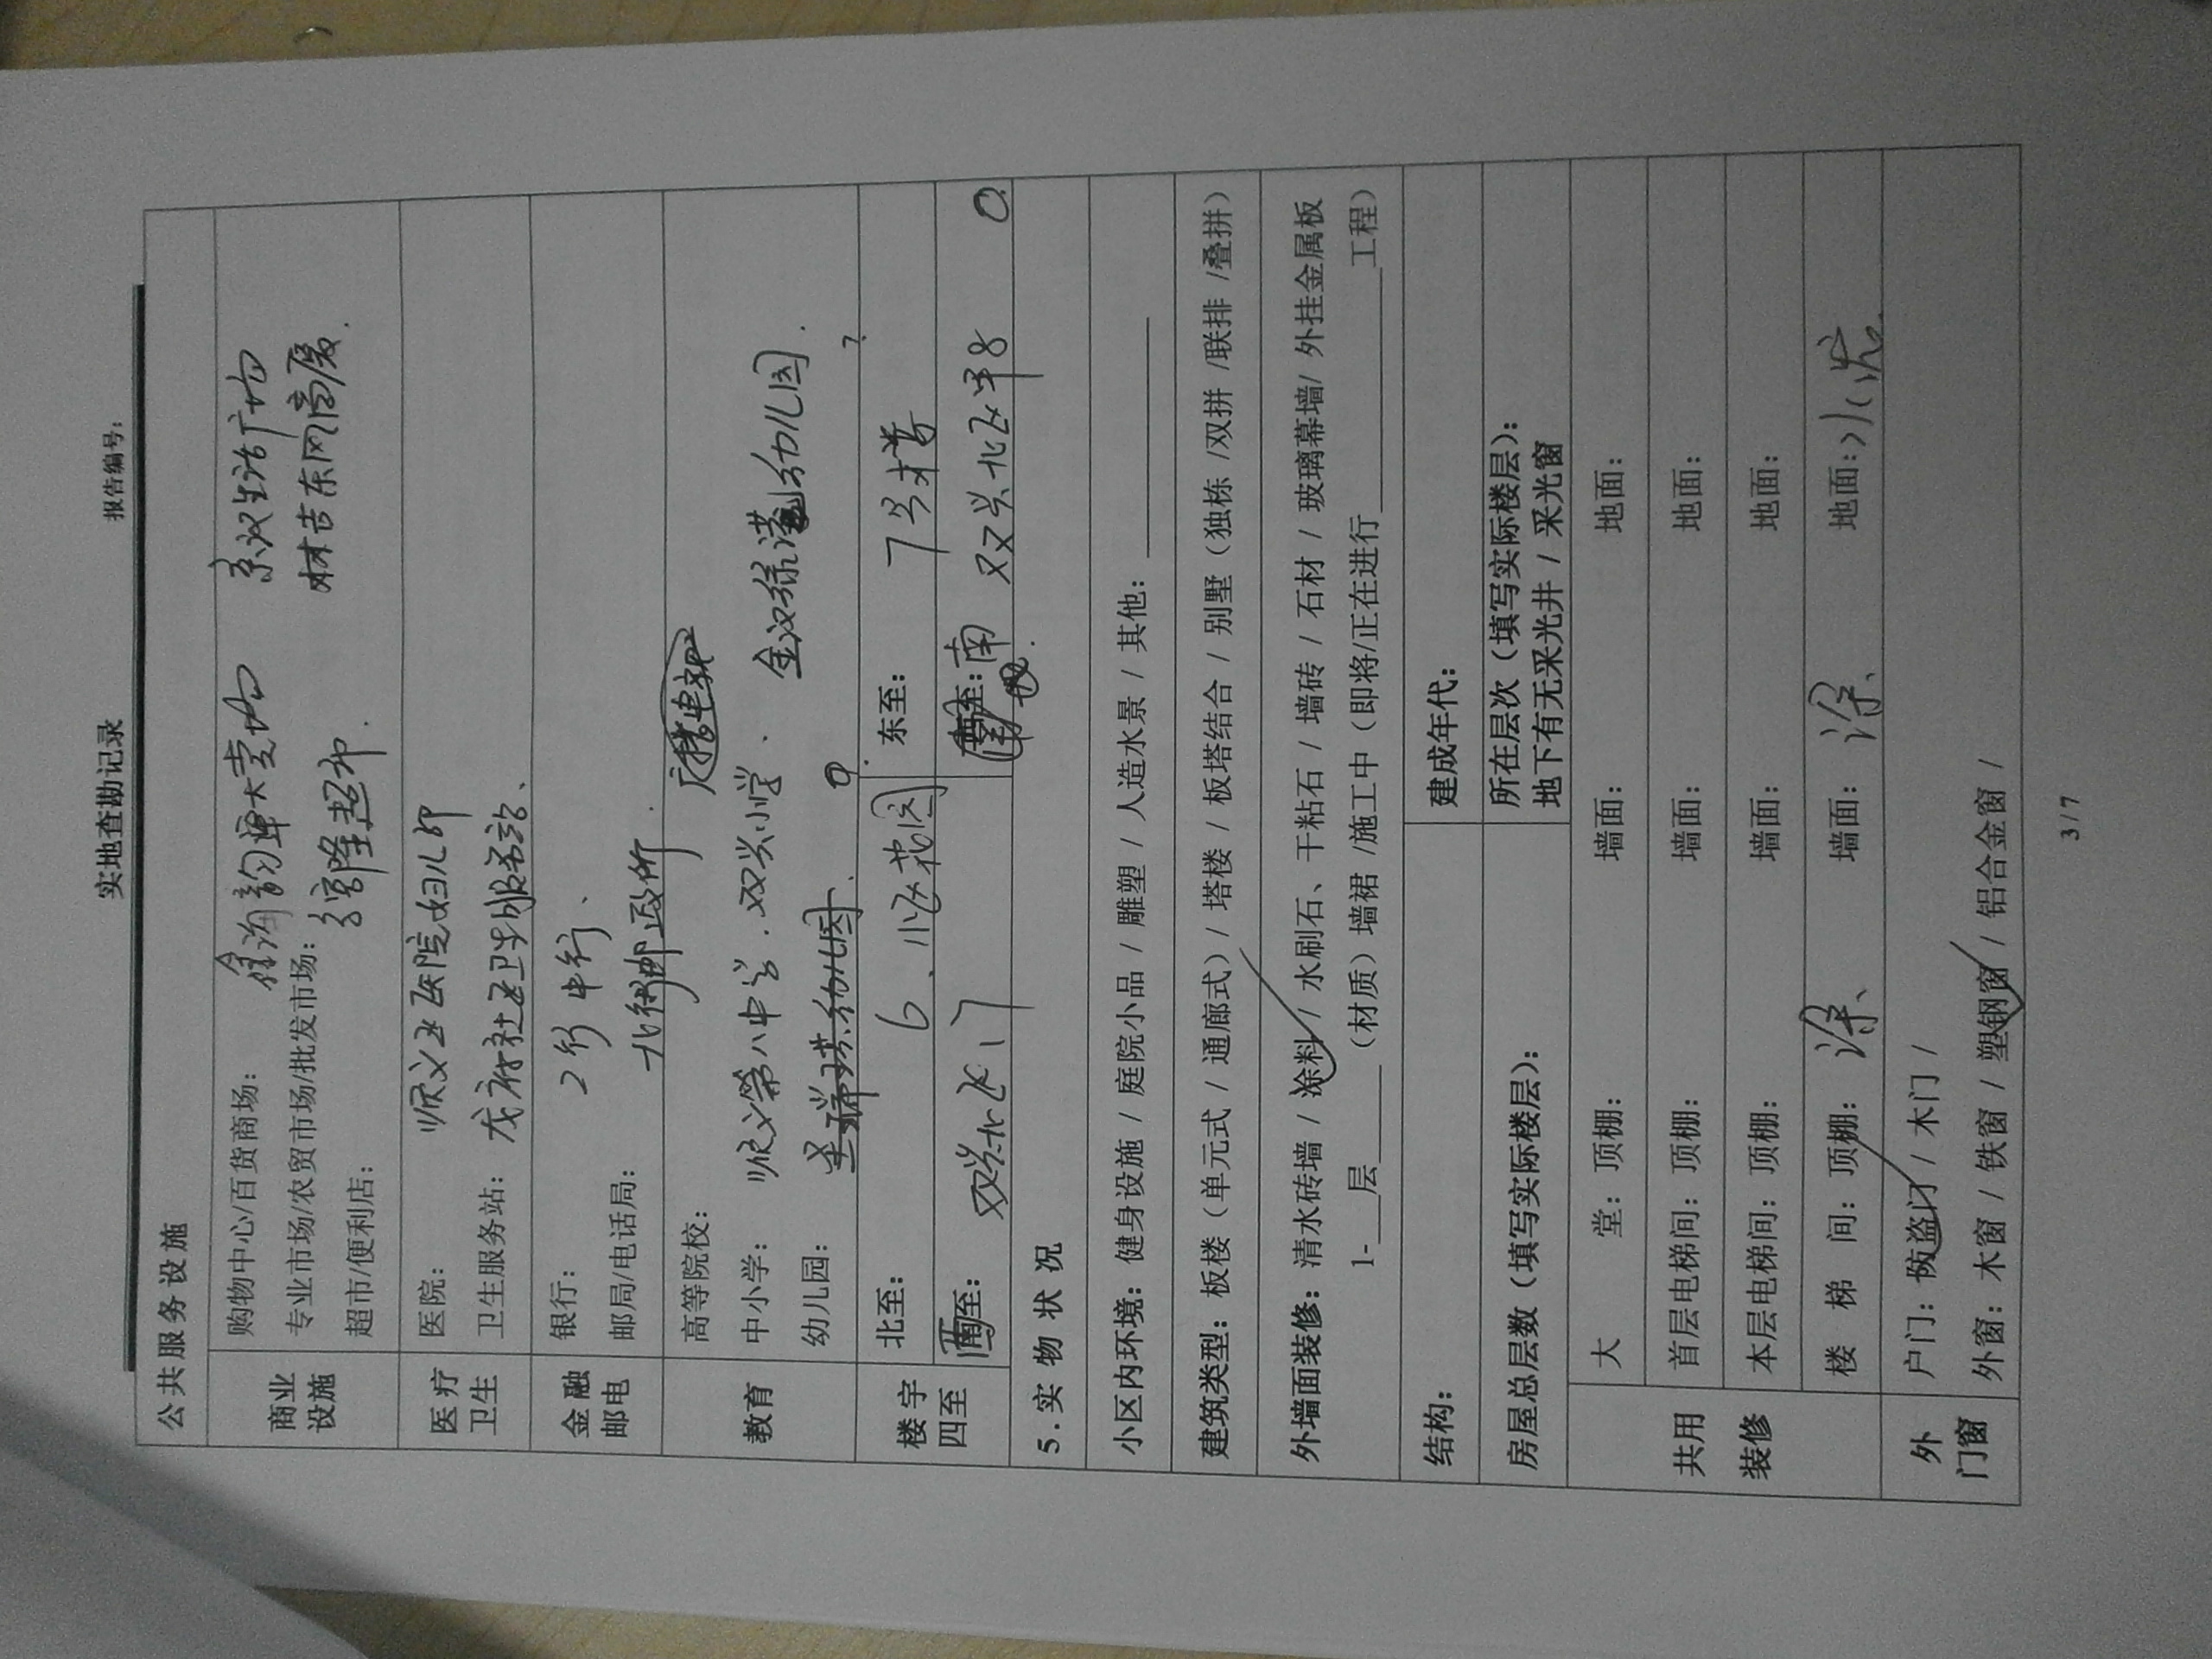 实地查勘记录 报告编号:
公共服务设施
商业设施 购物中心/百货商场: 大卖场 生活广场
专业市场/农贸市场/批发市场: 东网商厦.
超市/便利店: 隆超市.
医疗卫生 医院: 顺义区医院 妇儿
卫生服务站: 社区卫生服务站、
金融邮电 银行: 中行、
邮局/电话局: 邮政所.
教育 高等院校:
中小学: 顺义第八中学. 双兴小学、
幼儿园: 幼儿园. 金汉绿港幼儿园.
楼宇四至 北至: 6、小区花园 东至: 7号楼
西至: 双兴北区门 南 双兴北区平8
5.实物状况
小区内环境: 健身设施 / 庭院小品 / 雕塑 / 人造水景 / 其他:
建筑类型: 板楼(单元式 / 通廊式) / 塔楼 / 板塔结合 / 别墅(独栋 /双拼 /联排 /叠拼)
外墙面装修: 清水砖墙 / 涂料 / 水刷石、干粘石 / 墙砖 / 石材 / 玻璃幕墙/ 外挂金属板
1-___层______(材质)墙裙 /施工中(即将/正在进行______________工程)
结构: 建成年代:
房屋总层数(填写实际楼层): 所在层次(填写实际楼层):
地下有无采光井 / 采光窗
共用装修 大 堂: 顶棚: 墙面: 地面:
首层电梯间: 顶棚: 墙面: 地面:
本层电梯间: 顶棚: 墙面: 地面:
楼 梯 间: 顶棚: 涂、 墙面: 涂、 地面: 水泥.
外门窗 户门: 防盗门 / 木门 /
外窗: 木窗 / 铁窗 / 塑钢窗 / 铝合金窗 /
3/7